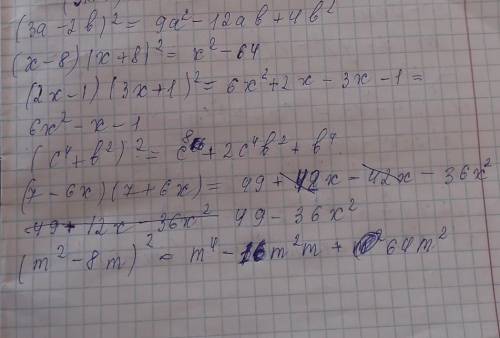 (3a-2b)² = 9a²-12ab+4b²
(x-8)(x+8)² = x²-64
(2x-1)(3x+1)² = 6x²+2x-3x-1=
6x²-x-1
(c⁴+b²)² = c⁸+2c⁴b²+b⁴
(7-6x)(7+6x) = 49+42x-42x-36x²
49+12x-36x² 49-36x²
(m²-8m)² = m⁴-16m²m+64m²